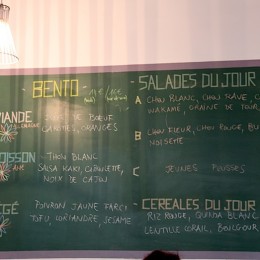 BENTO
SALADES DU JOUR
A CHOU BLANC, CHOU RAVE, C
WAKAMÉ, GRAINE DE TOUR
VIANDE
DE BOEUF
CAROTTES, ORANGES
B CHOU FLEUR, CHOU ROUGE, BU
NOISETTE
POISSON
THON BLANC
SALSA KAKI, CIBOULETTE,
NOIX DE CAJOU
C JEUNES POUSSES
POIVRON JAUNE FARCI
TOFU, CORIANDRE, SÉSAME
CEREALES DU JOUR
RIZ ROUGE, QUINOA BLANC
LENTILLE CORAIL, BOULGOUR